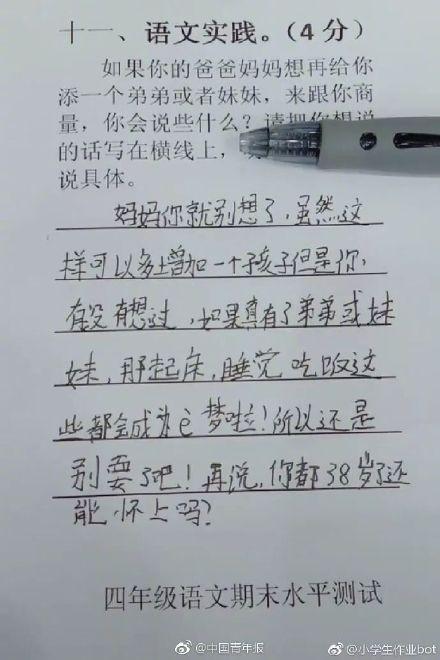 十一、语文实践。(4分)
如果你的爸爸妈妈想再给你
添一个弟弟或者妹妹，来跟你商
量，你会说些什么？请把你想说
的话写在横线上，
说具体。
妈妈你就别想了，虽然这
样可以多增加一个孩子但是你，
有没有想过，如果真有了弟弟或妹
妹，那起床，睡觉 吃饭这
些都会成为è梦啦！所以还是
别要了吧！再说，你都38岁了还
能怀上吗？
四年级语文期末水平测试
@中国青年报
@小学生作业bot